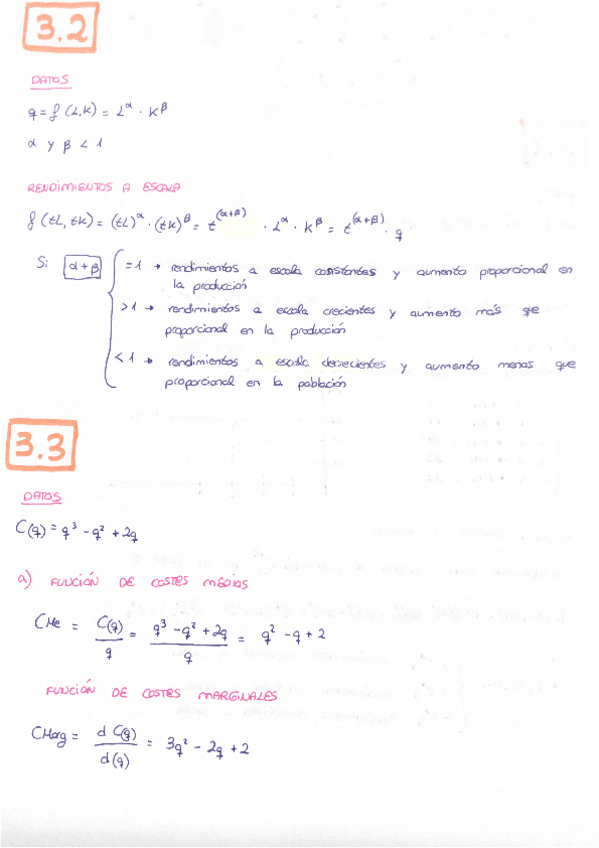 3.2
DATOS
q = f (L,K) = L^α · K^β
α y β < 1
RENDIMIENTOS A ESCALA
f (tL, tK) = (tL)^α · (tK)^β = t^(α+β) · L^α · K^β = t^(α+β) · q
Si α+β = 1 → rendimientos a escala constantes y aumento proporcional en
la producción
> 1 → rendimientos a escala crecientes y aumento más que
proporcional en la producción
< 1 → rendimientos a escala decrecientes y aumento menos que
proporcional en la población
3.3
DATOS
C(q) = q³ - q² + 2q
a) FUNCIÓN DE COSTES MEDIOS
CMe = C(q)/q = (q³ - q² + 2q)/q = q² - q + 2
FUNCIÓN DE COSTES MARGINALES
CMarg = d C(q)/d(q) = 3q² - 2q + 2